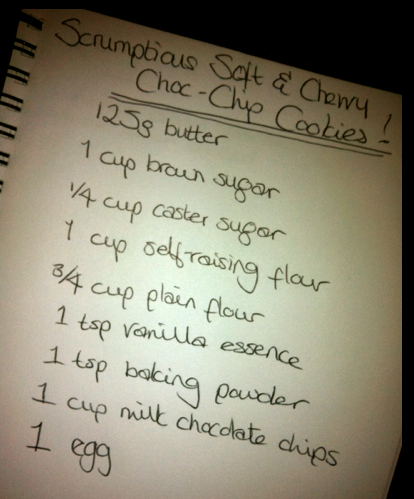 Scrumptious Soft & Chewy
Choc-Chip Cookies!
125g butter
1 cup brown sugar
1/4 cup caster sugar
1 cup self raising flour
3/4 cup plain flour
1 tsp vanilla essence
1 tsp baking powder
1 cup milk chocolate chips
1 egg